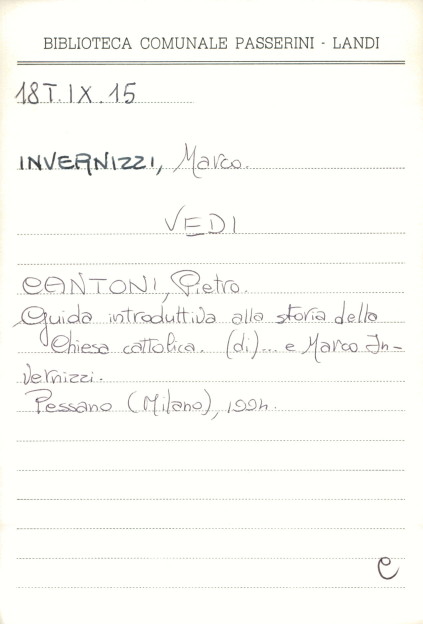 BIBLIOTECA COMUNALE PASSERINI - LANDI
18T.IX.15
INVERNIZZI, Marco.
VEDI
CANTONI, Pietro.
Guida introduttiva alla storia della
Chiesa cattolica. (di)... e Marco In-
vernizzi.
Pessano (Milano), 1994.
e